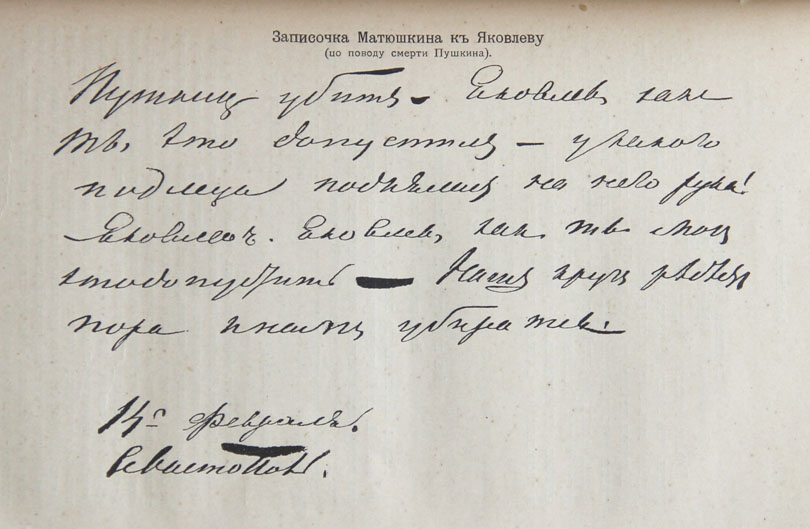 Записочка Матюшкина къ Яковлеву
(по поводу смерти Пушкина).
Пушкин убитъ – Яковлевъ какъ
ты это допустилъ – у какого
подлеца поднялась на него рука!
Яковлевъ. Яковлевъ, какъ ты могъ
это допустить — Нашъ кругъ рѣдѣетъ
пора и намъ убираться.
14го Февраля.
Севастополь.